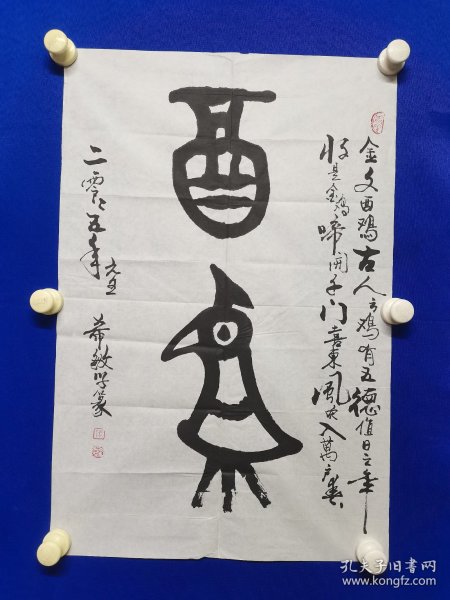 金文酉鸡古人云鸡有五德值日之年
是金鸡啼開子门喜東风吹入萬户春
酉
二零零五年元旦
希敏学篆
孔夫子旧书网
www.kongfz.com